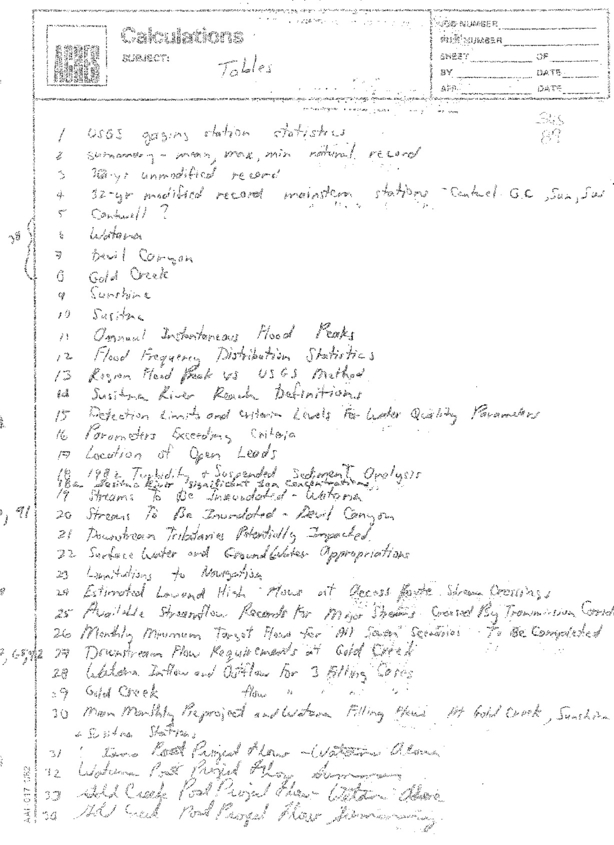 Calculations
SUBJECT:
Tables
JOB NUMBER
FILE NUMBER
SHEET OF
BY DATE
APP. DATE
89
1 USGS gaging station statistics
2 summary - mean, max, min natural record
3 unmodified record
4 32-yr modified record mainstem stations - Cantwel G.C, Sun, Sus
5 Cantwell ?
38
6 Watana
7 Devil Canyon
8 Gold Creek
9 Sunshine
10 Susitna
11 Annual Instantaneous Flood Peaks
12 Flood Frequency Distribution Statistics
13 Region Flood Peak vs USGS Method
14 Susitna River Reach Definitions
15 Detection Limits and Criterion Levels For Water Quality Parameters
16 Parameters Exceeding Criteria
17 Location of Open Leads
18 1982 Turbidity + Suspended Sediment Analysis
18a Susitna River significant Ion Concentrations
19 Streams To Be Innundated - Watana
91
20 Streams To Be Inundated - Devil Canyon
21 Downstream Tributaries Potentially Impacted
22 Surface Water and GroundWater Appropriations
23 Limitations to Navigation
24 Estimated Low and High Flows at Access Route Stream Crossings
25 Available Streamflow Records For Major Streams Crossed By Transmission
26 Monthly Minimum Target Flow for All Seven Scenarios - To Be Completed
27 Downstream Flow Requirements at Gold Creek
28 Watana Inflow and Outflow For 3 Filling Cases
29 Gold Creek flow " "
30 Mean Monthly Preproject and Watana Filling Flows At Gold Creek, Sunshine
+ Susitna Stations
31 Post Project Flows - Watana Alone
32 Watana Post Project Flow Summary
33 Gold Creek Post Project Flow - Watana Alone
Gold Creek Post Project Flow Summary